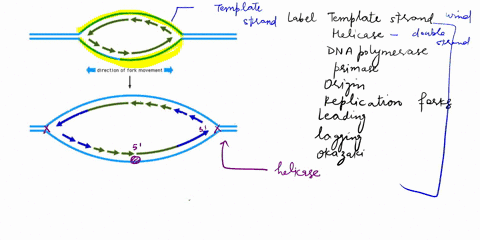 Template strand
Label Template strand wind
Helicase - double strand
DNA polymerase
primase
Origin
Replication forks
Leading
lagging
Okazaki
direction of fork movement
5'
5'
helicase